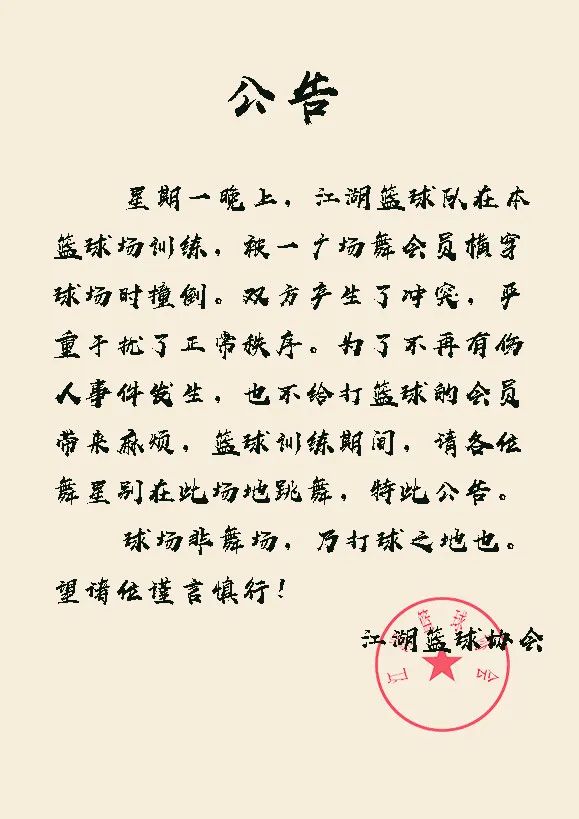 公告
星期一晚上，江湖篮球队在本
篮球场训练，被一广场舞会员横穿
球场时撞倒。双方产生了冲突，严
重干扰了正常秩序。为了不再有伤
人事件发生，也不给打篮球的会员
带来麻烦，篮球训练期间，请各位
舞星别在此场地跳舞，特此公告。
球场非舞场，乃打球之地也。
望诸位谨言慎行！
江湖篮球协会
江 篮球 会